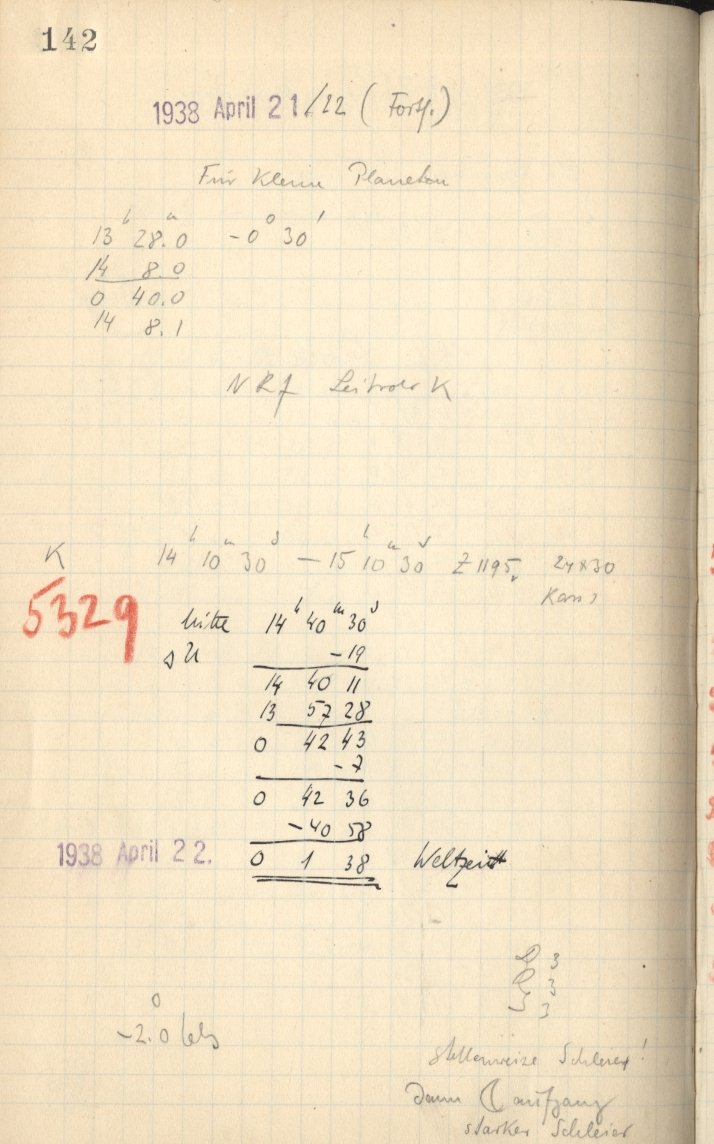 142
1938 April 21/22 (Forts.)
Für Kleine Planeten
13ʰ 28.0ᵐ -0° 30'
14 8.0
0 40.0
14 8.1
K 14ʰ 10ᵐ 30ˢ — 15ʰ 10ᵐ 30ˢ Z 1195, 24x30
5329
Mitte 14ʰ 40ᵐ 30ˢ
-19
14 40 11
13 57 28
0 42 43
-7
0 42 36
-40 58
1938 April 22. 0 1 38 Weltzeit
3
3
3
-2.0
stellenweise Schleier!
Dann ☾ aufgang
starker Schleier